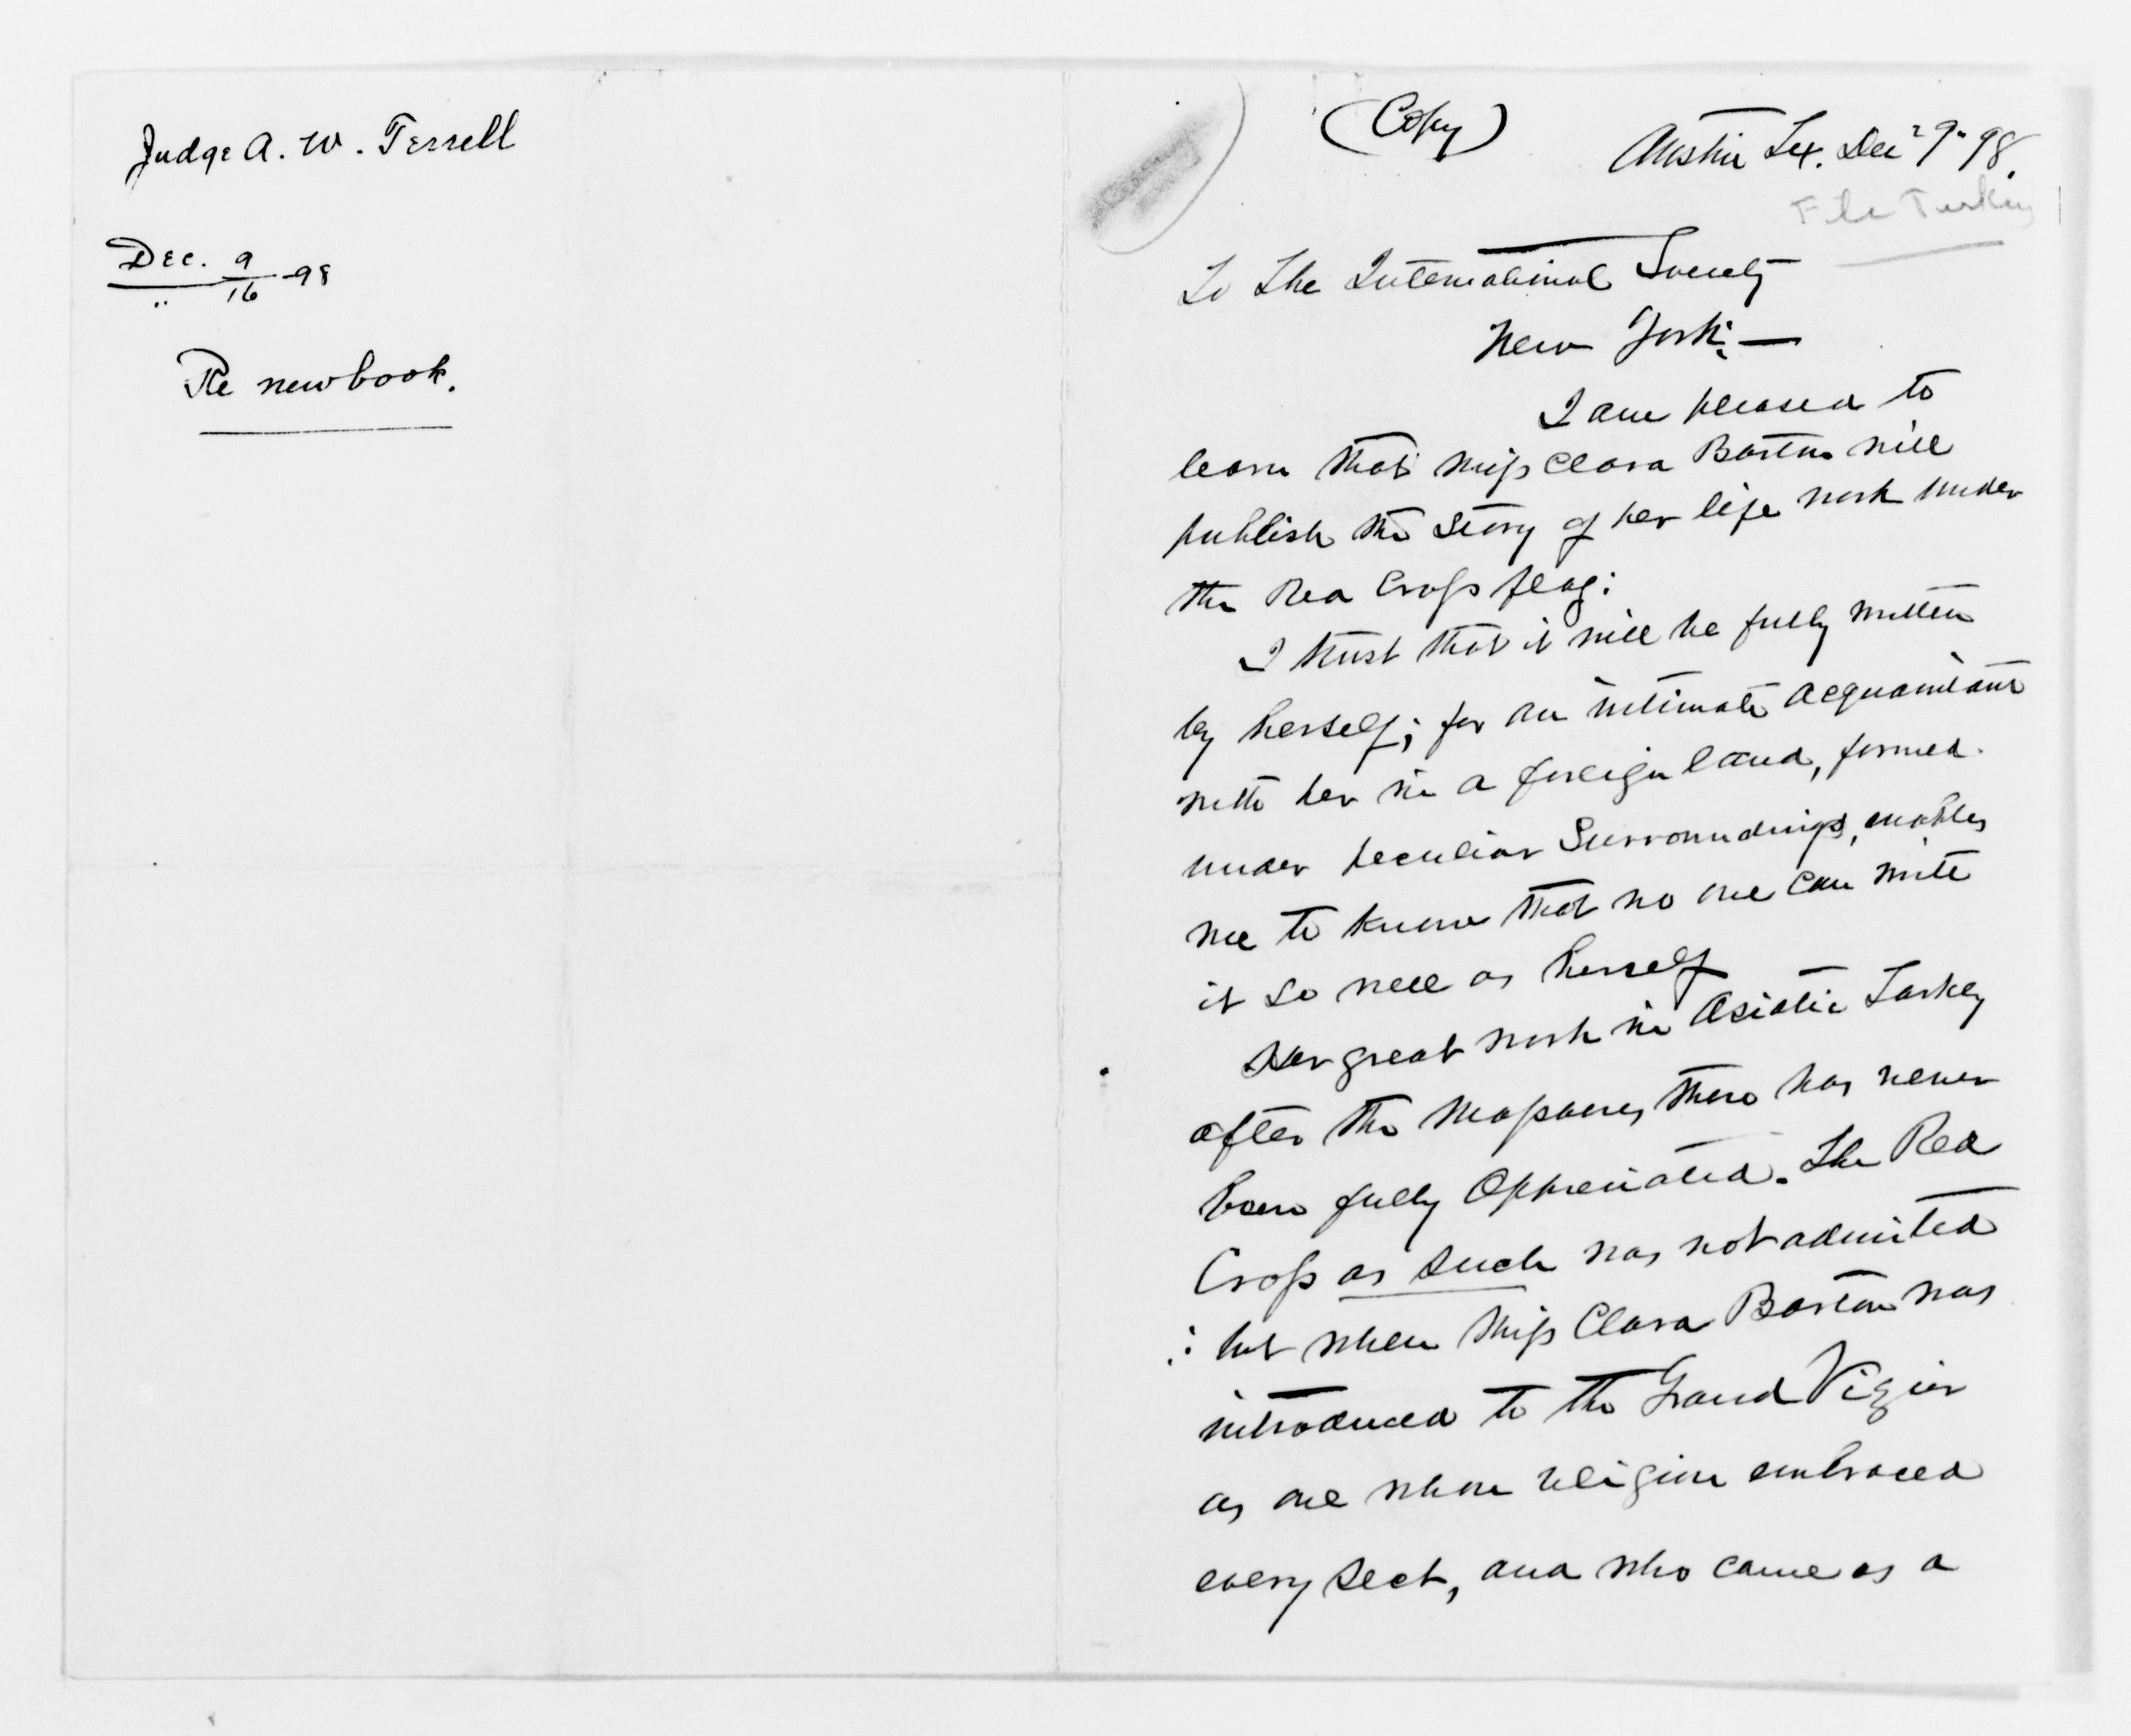 Judge A. W. Terrell
Dec. 9
" 16 -98
Re new book.
(Copy)
Austin Tx. Dec 9" 98.
File Turkey
To The International Society
New York; —
I am pleased to
learn that Miss Clara Barton will
publish the story of her life work under
the Red Cross flag:
I trust that it will be fully written
by herself; for an intimate acquaintance
with her in a foreign land, formed
under peculiar surroundings, enables
me to know that no one can write
it so well as herself
Her great work in Asiatic Turkey
after the Massacres there has never
been fully appreciated. The Red
Cross as such was not admited
: but when Miss Clara Barton was
introduced to the Grand Vizier
as one whose religion embraced
every sect, and who came as a